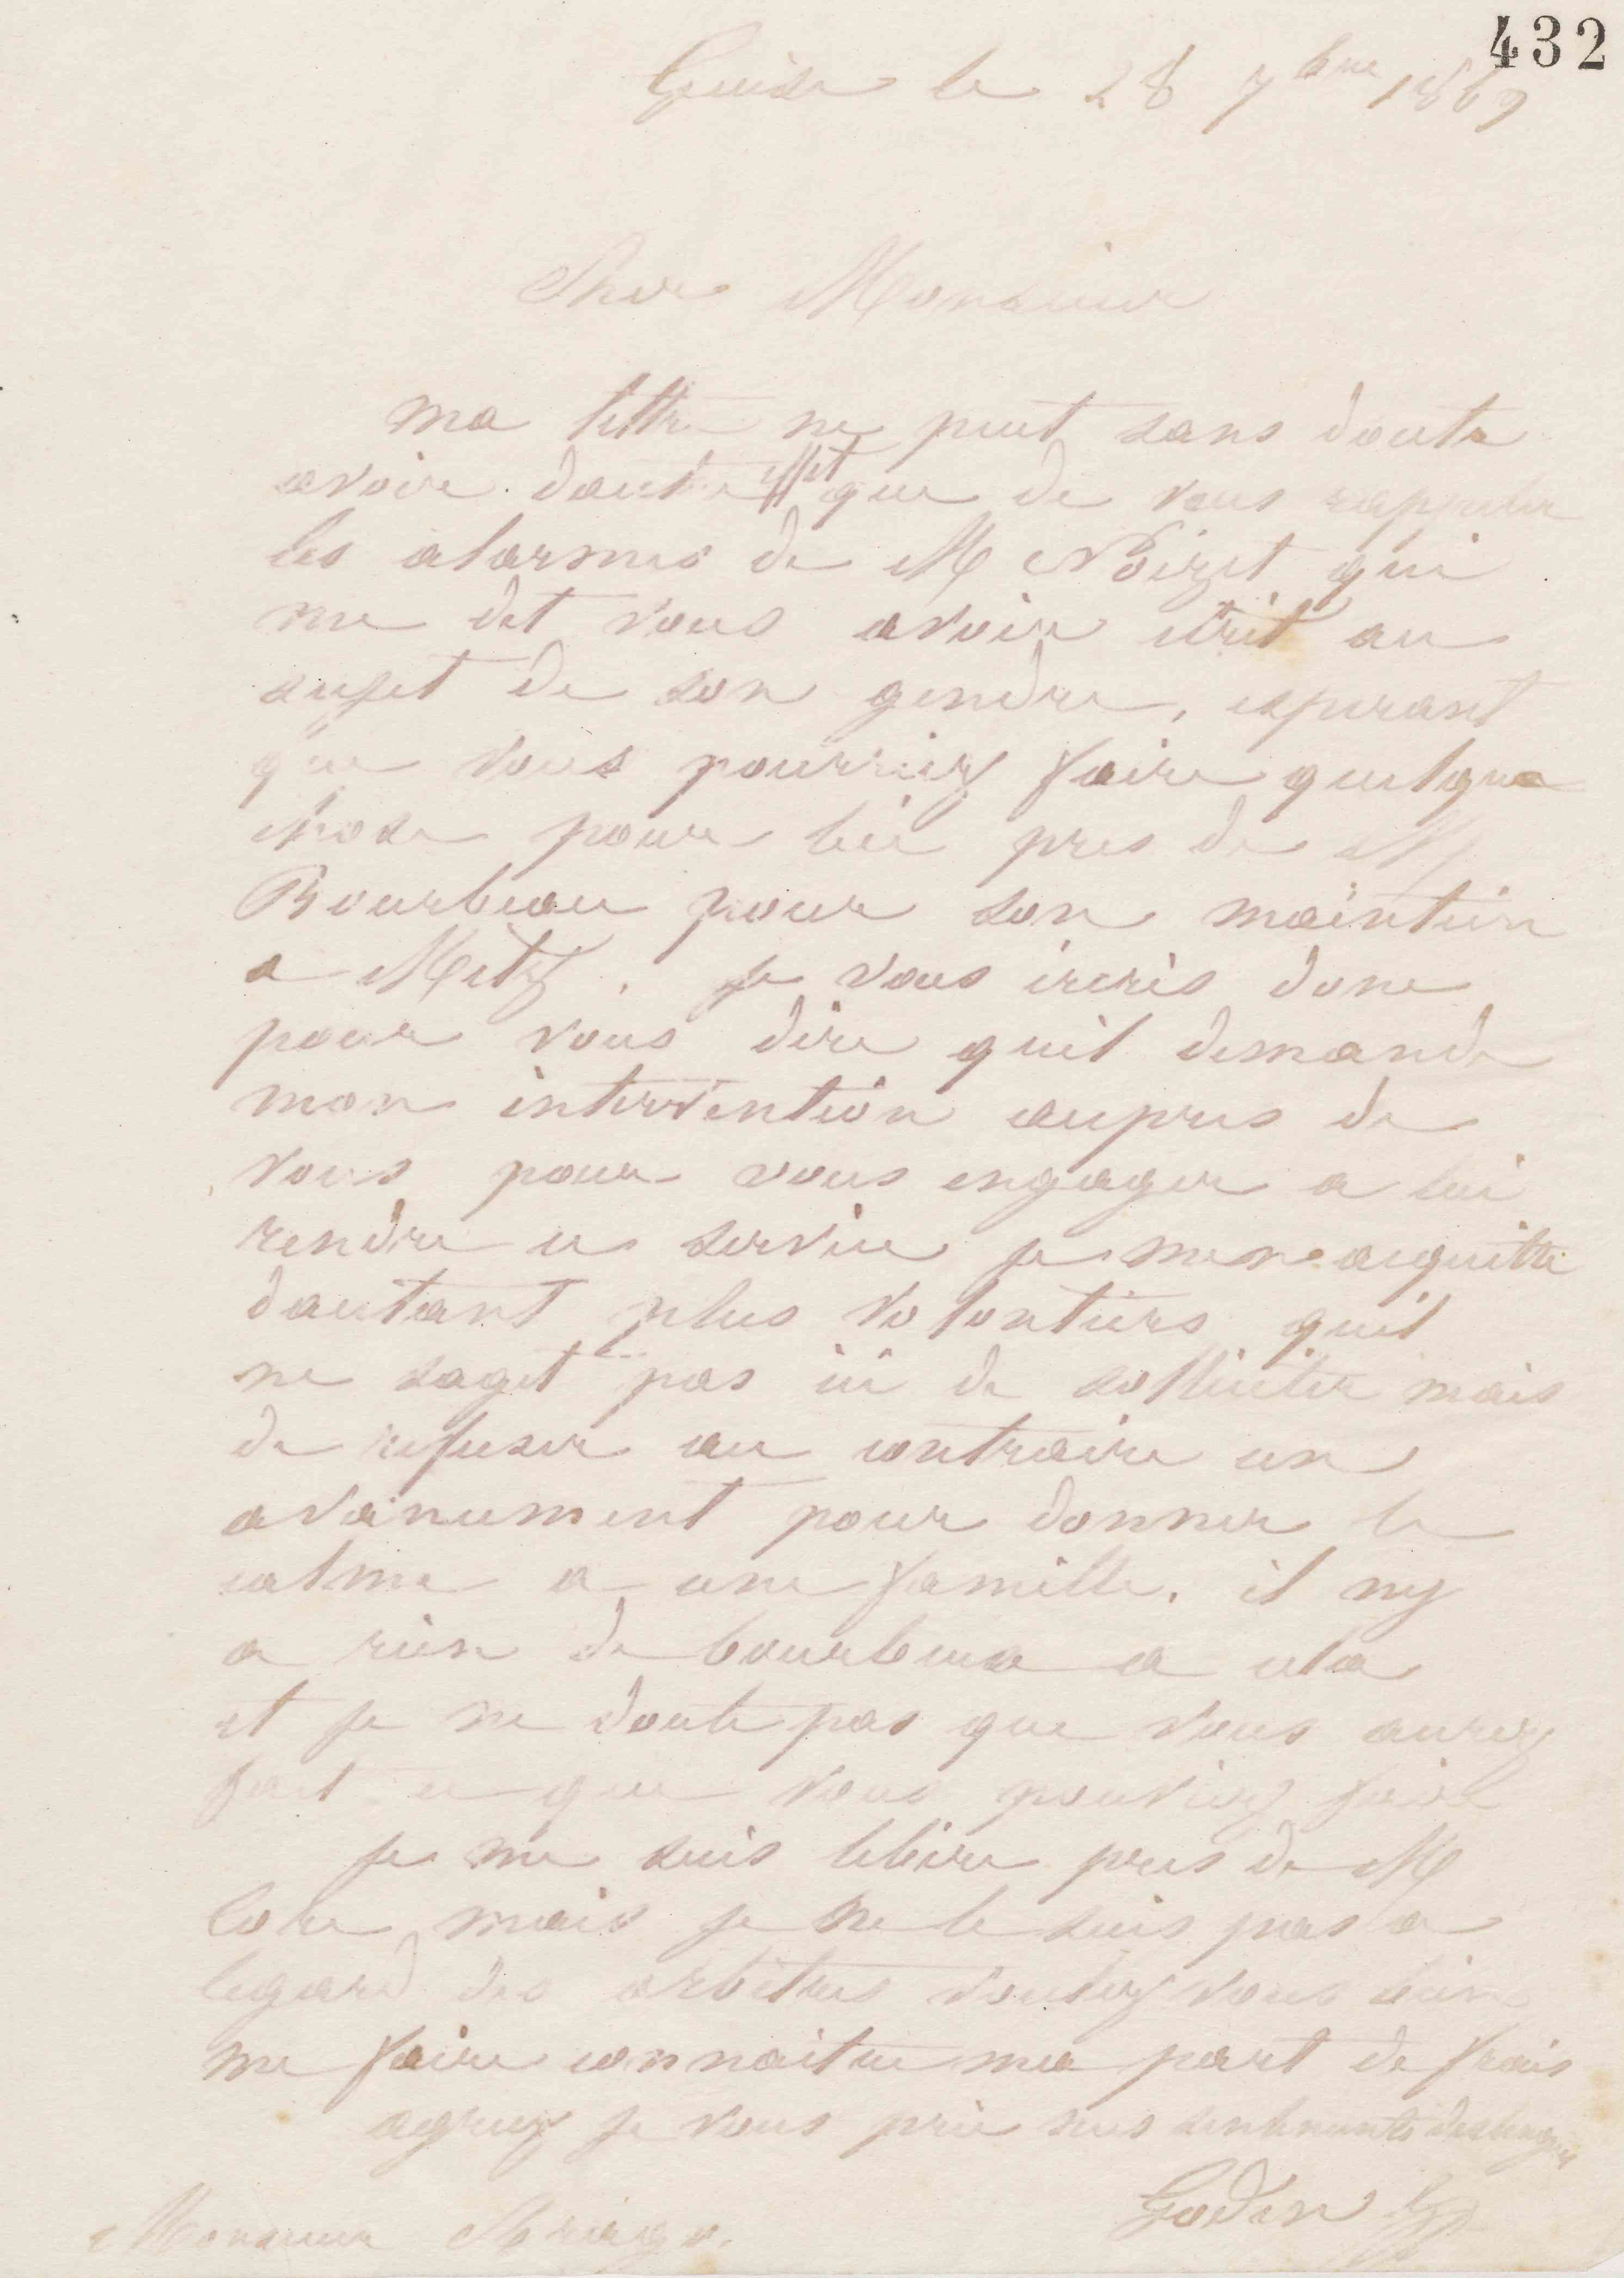 432
Guise le 28 7bre 1869
Cher Monsieur
ma lettre ne peut sans doute
avoir dautre effet que de vous rappeler
les alarmes de M Noizet qui
me dit vous avoir ecrit au
sujet de son gendre, esperant
que vous pourriez faire quelque
chose pour lui pres de M
Bourbeau pour son maintien
a Metz. je vous ecris donc
pour vous dire quil demande
mon intervention aupres de
vous pour vous engager a lui
rendre ce service je men acquitte
dautant plus volontiers quil
ne sagit pas ici de solliciter mais
de refuser au contraire un
avancement pour donner le
calme a une famille. il ny
a rien de bourbeux a cela
et je ne doute pas que vous aurez
fait ce que vous pouviez faire
je me suis libere pres de M
mais je ne le suis pas a
legard des arbitres voulez vous bien
me faire connaitre ma part de frais
agreez je vous prie mes sentiments
Godin
Monsieur